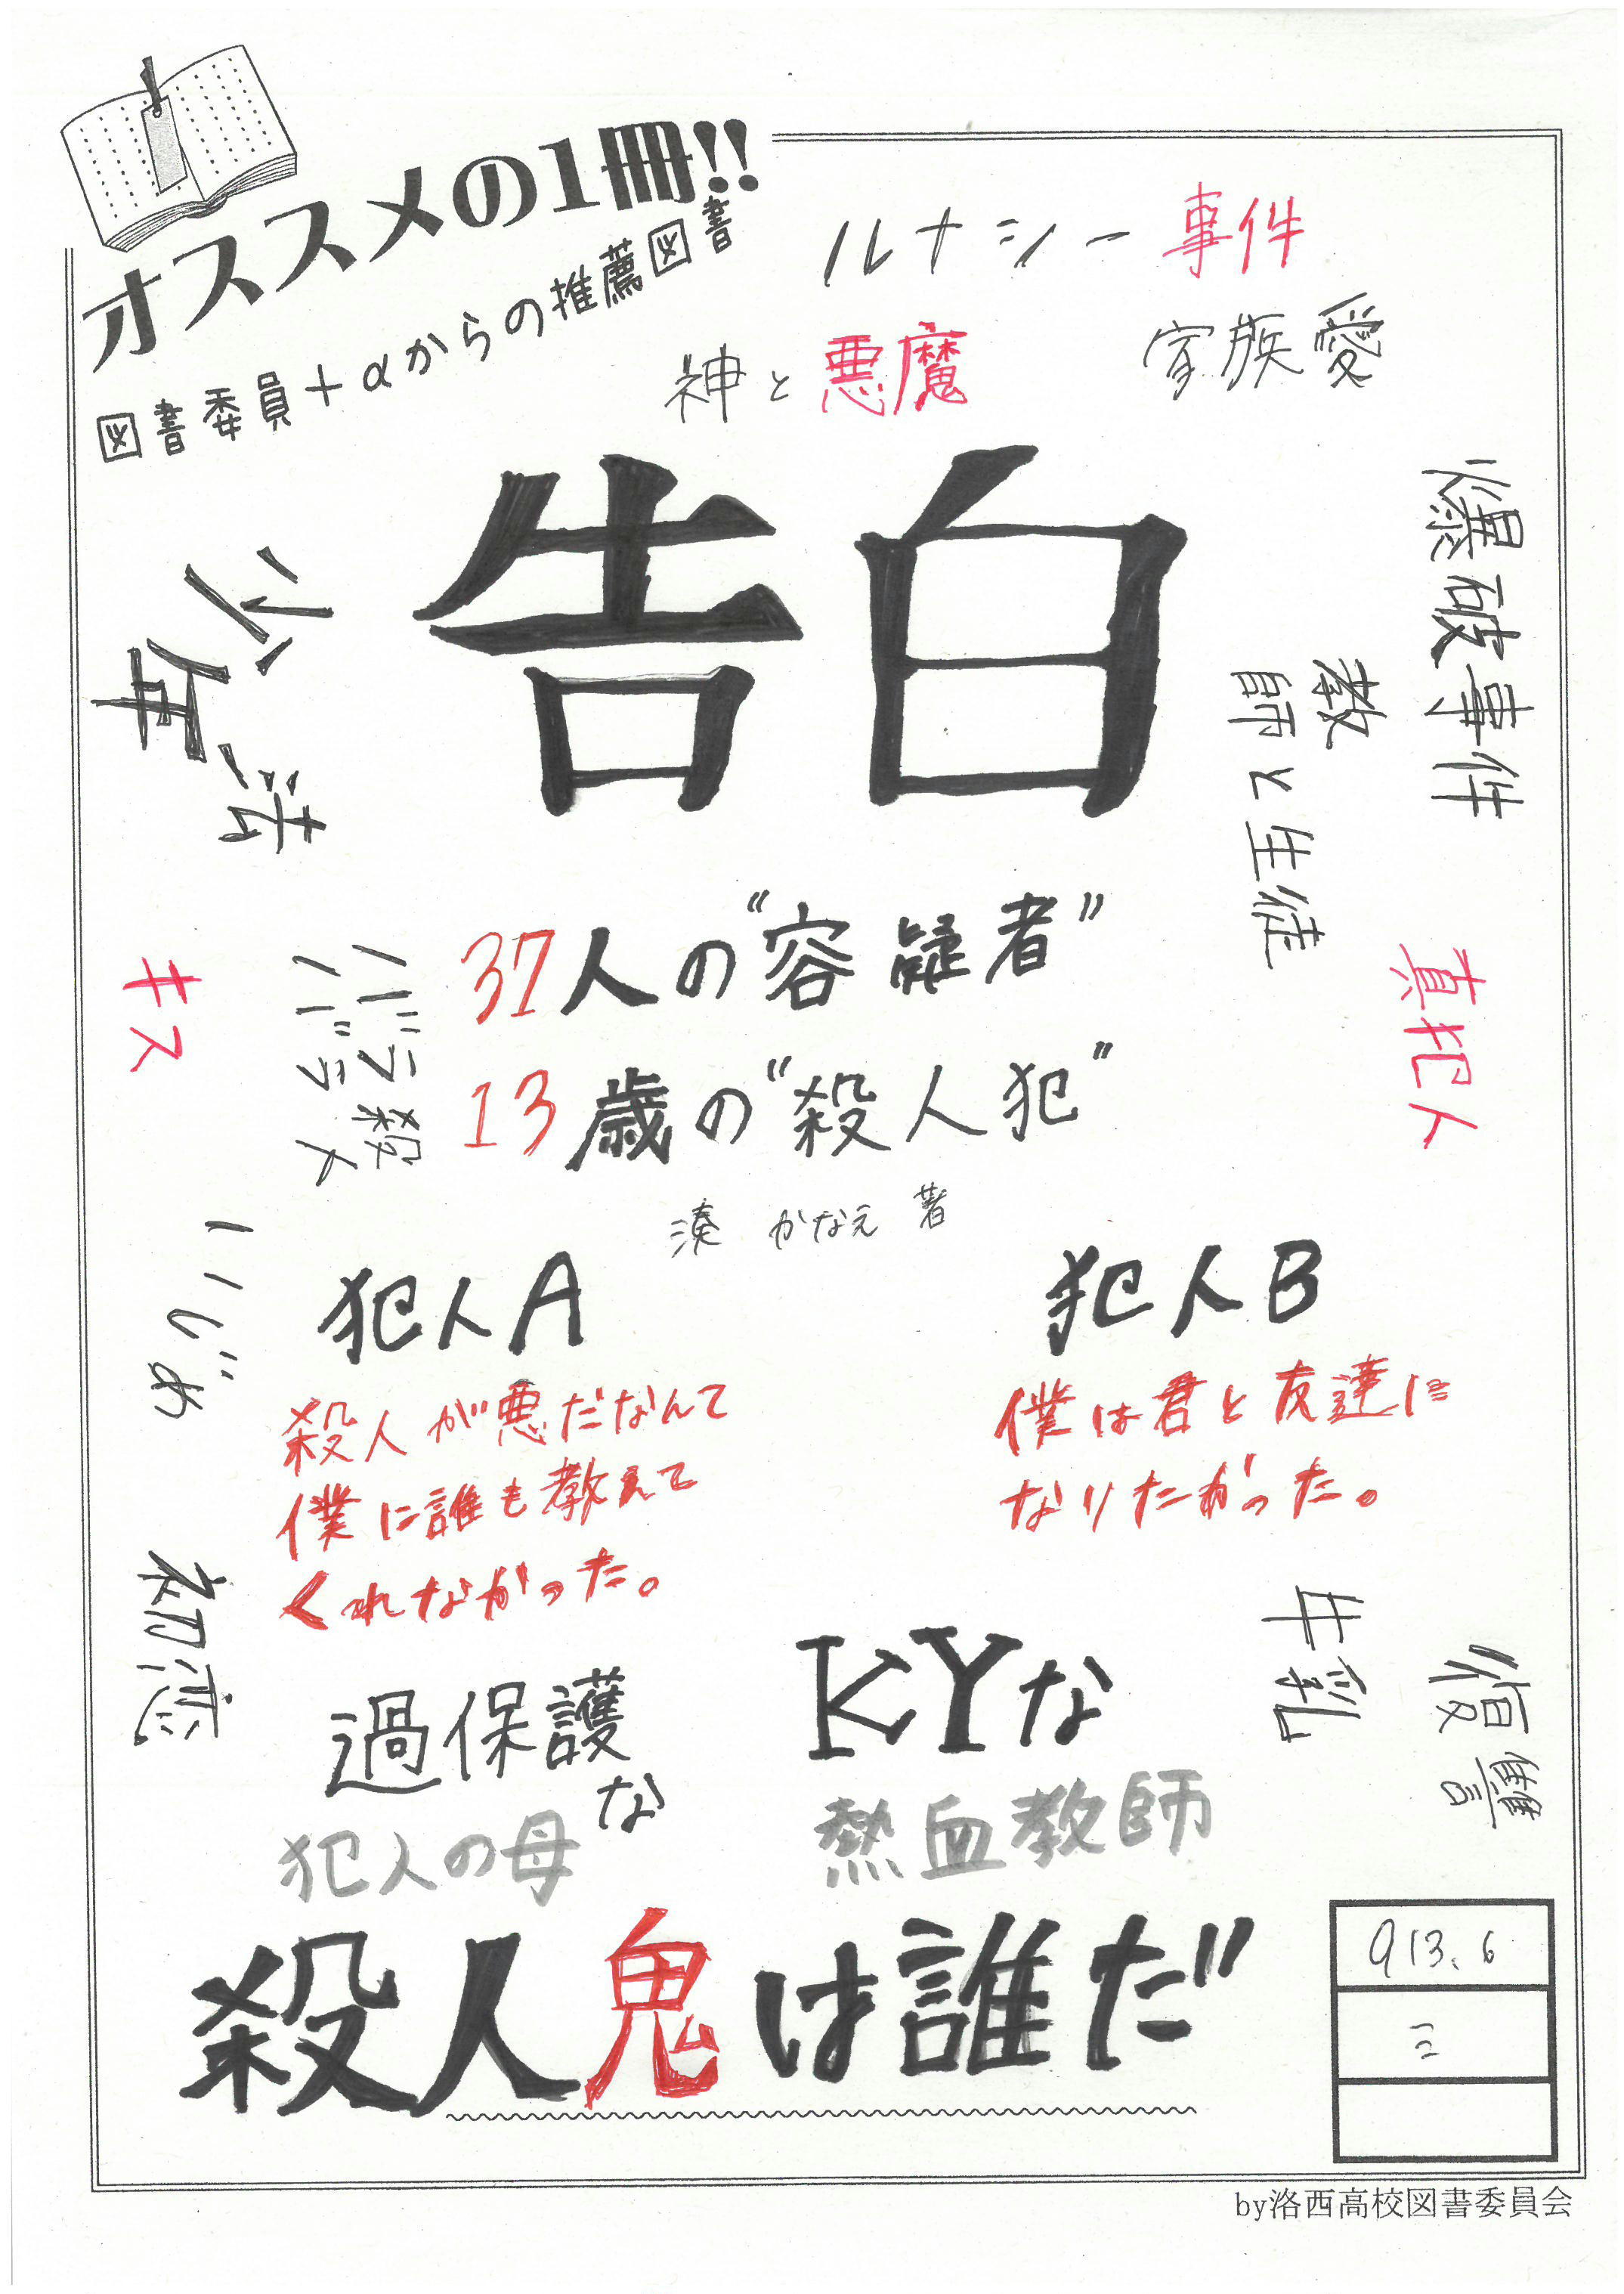 オススメの1冊!!
図書委員+αからの推薦図書
ルナシー事件
神と悪魔
家族愛
告白
少年法
爆破事件
教師と生徒
37人の“容疑者”
13歳の“殺人犯”
湊 かなえ 著
キス
バラバラ殺人
真犯人
犯人A
殺人が悪だなんて
僕に誰も教えて
くれなかった。
犯人B
僕は君と友達に
なりたかった。
いじめ
初恋
過保護な
犯人の母
KYな
熱血教師
牛乳
復讐
殺人鬼は誰だ
913.6
ミ
by洛西高校図書委員会